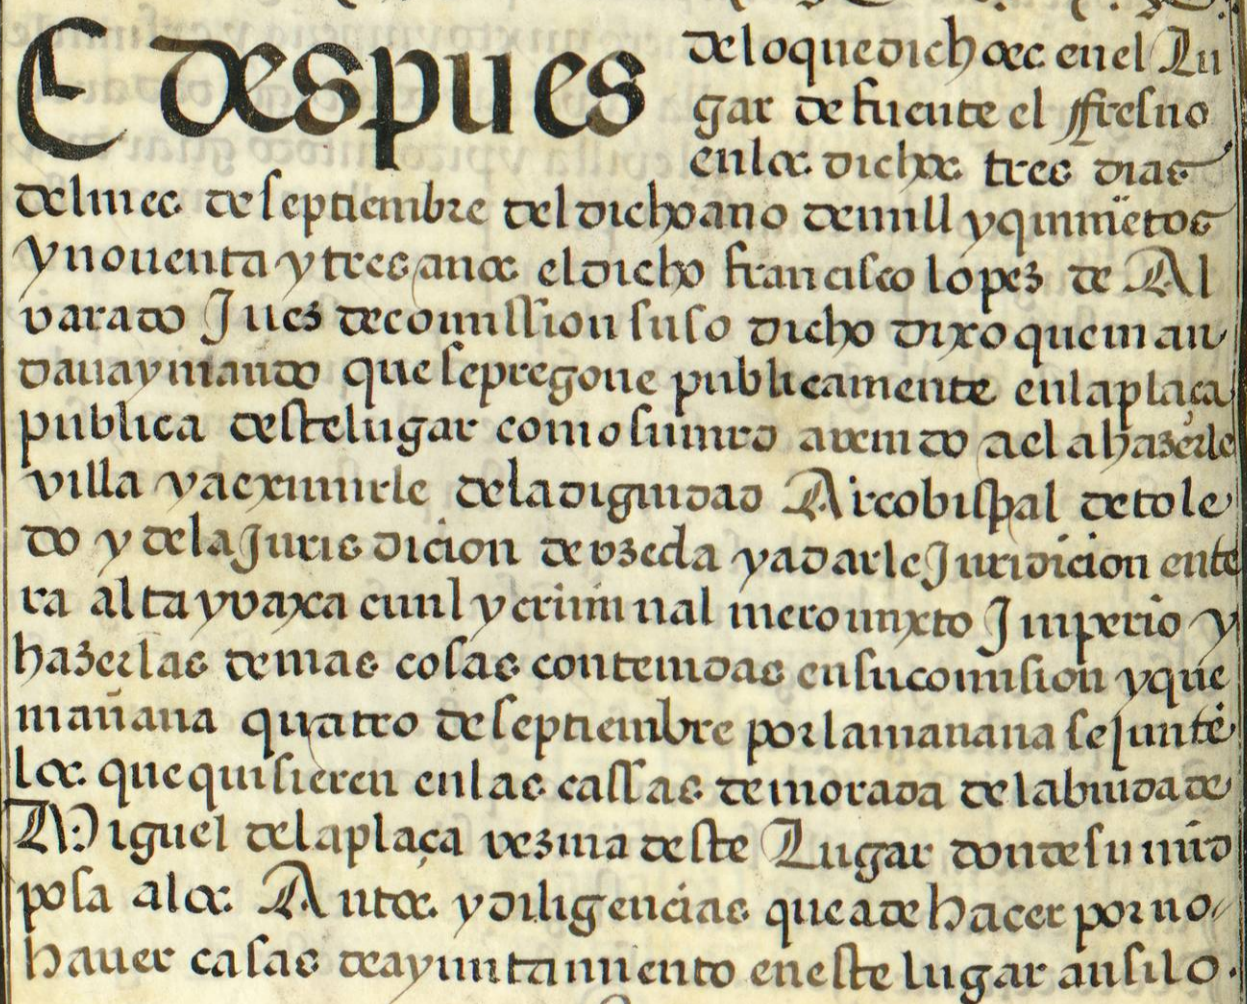 E despues de lo que dichoes en el Lu
gar de fuente el ffresno
en los dichos tres dias
del mes de septiembre del dicho ano de mill y quiniẽtos
y nouenta y tres anos el dicho francisco lopez de Al
varado Juez de comission suso dicho dixo que man
daua y mando que se pregone publicamente en la plaça
publica deste lugar como su mrd a venido a el a hazerle
villa y a eximirle de la dignidad Arcobispal de tole
do y de la Juris dicion de vzeda y a darle Juridicion ente
ra alta y vaxa ciuil y criminal mero mixto Imperio y
hazer las demas cosas contenidas en su comision y que
mañana quatro de septiembre por la manana se juntẽ
los que quisieren en las cassas de morada de la biuda de
Miguel de la plaça vezina deste Lugar donde su mrd
posa a los Autos y diligencias que a de hacer por no
hauer casas de ayuntamiento en este lugar ansi lo.